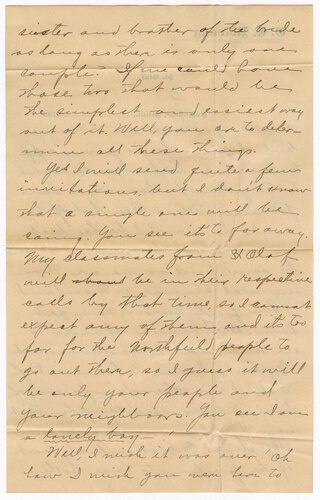 sister and brother of the bride
as long as there is only one
couple. If we could have
those two that would be
the simplest and easiest way
out of it. Well, you are to deter-
mine all these things.
Yes I will send quite a few
invitations, but I don't know
that a single one will be
coming. You see it's to far away.
My classmates from St Olaf
will be in their respective
calls by that time, so I cannot
expect any of them, and it's too
far for the Northfield people to
go out there, so I guess it will
be only your people and
your neighbours. You see I am
a lonely boy!
Well, I wish it was over! Oh
how I wish you were here to